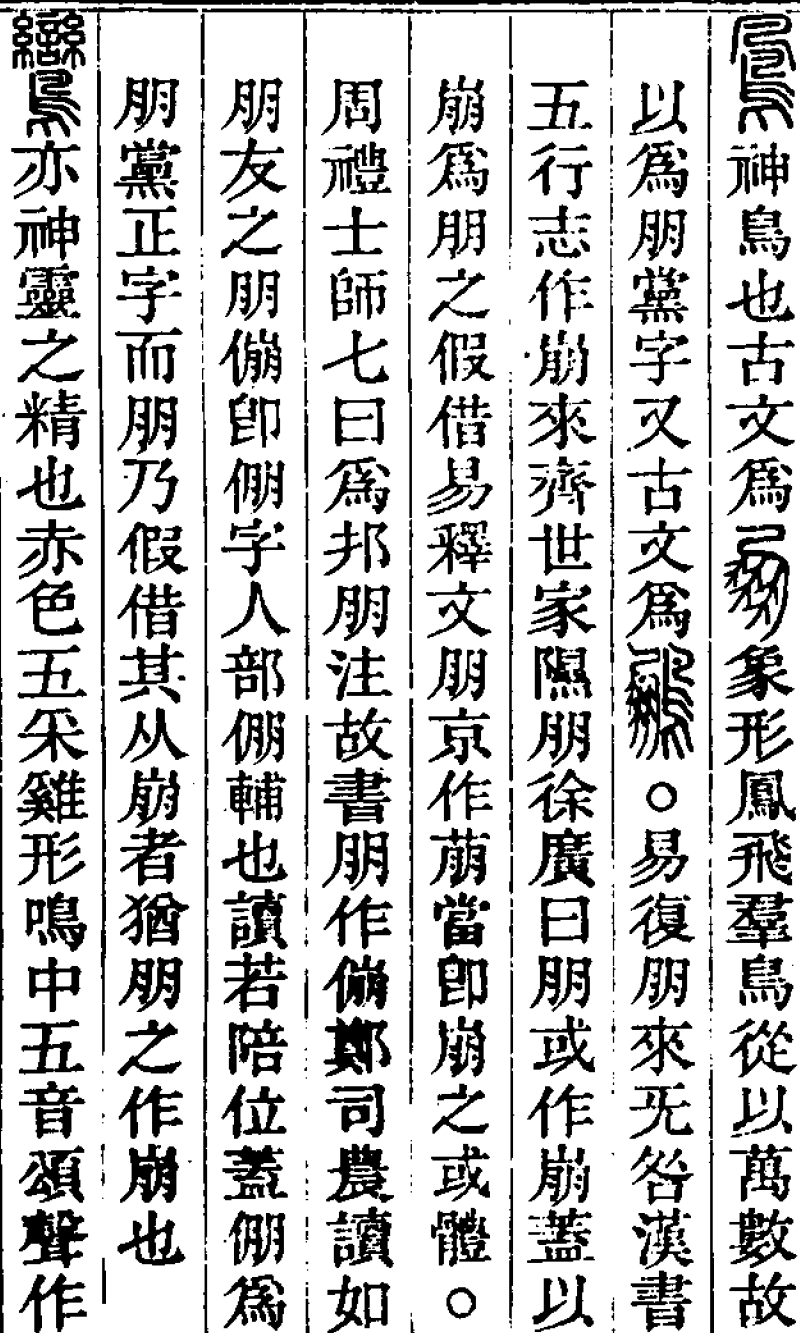 鳳神鳥也古文爲象形鳳飛羣鳥從以萬數故
以爲朋黨字又古文爲○易復朋來旡咎漢書
五行志作崩來齊世家隰朋徐廣曰朋或作崩蓋以
崩爲朋之假借易釋文朋京作萠當卽崩之或體○
周禮士師七曰爲邦朋注故書朋作傰鄭司農讀如
朋友之朋傰卽倗字人部倗輔也讀若陪位蓋倗爲
朋黨正字而朋乃假借其从崩者猶朋之作崩也
鸞亦神靈之精也赤色五采雞形鳴中五音頌聲作